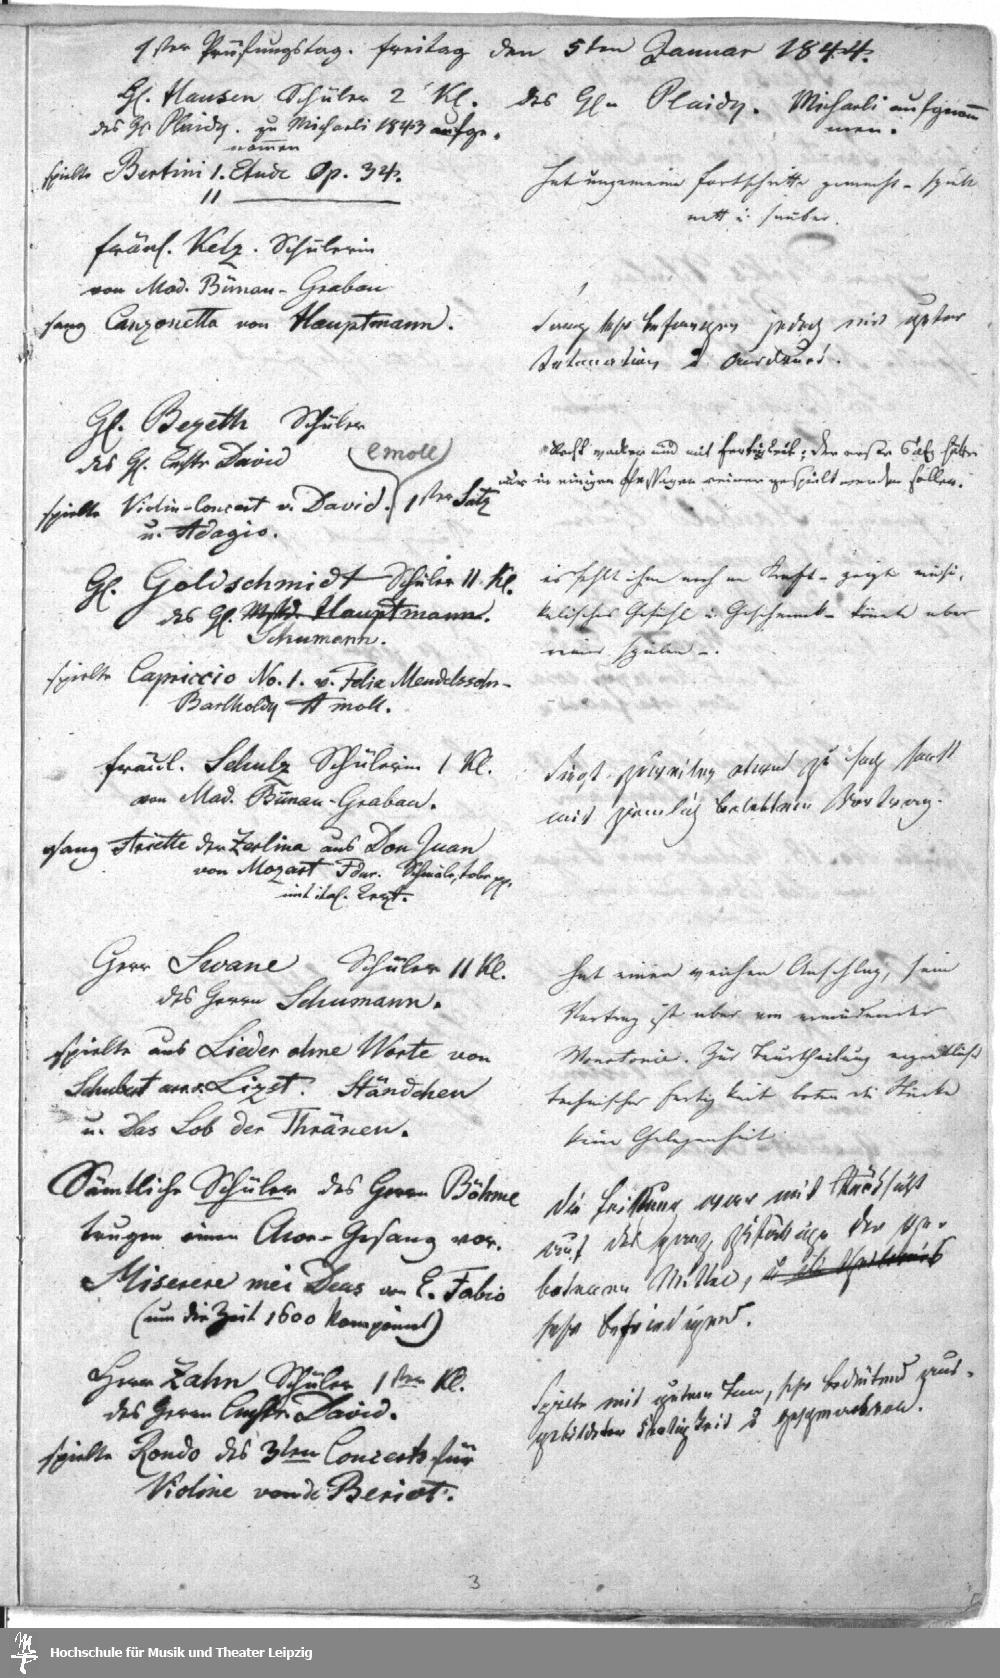 1ster Prüfungstag. Freitag den 5ten Januar 1844.
H. Hausen Schüler 2 Kl. des H. Plaidy. Michaeli aufgenom
men.
des H. Plaidy. zu Michaeli 1843 aufge-
nommen
spielte Bertini 1. Etude Op. 34.
11
Hat ungemeine Fortschritte gemacht – spielt
nett u. sauber.
Fräul. Kelz. Schülerin
von Mad. Bünau-Grabau
sang Canzonetta von Hauptmann.
Sang sehr befangen jedoch mit guter
Intonation u Ausdruck.
H. Bezeth Schüler
des H. Cmstr David
spielte Violin-Concert v. David. 1ster Satz
emoll
u. Adagio.
Recht wacker und mit Fertigkeit; der erste Satz hätte
nur in einigen Passagen reiner gespielt werden sollen.
H. Goldschmidt Schüler 11 Kl.
des H. Mstr. Hauptmann.
Schumann.
spielte Capriccio No. 1. v. Felix Mendelssohn-
Bartholdy A moll.
es fehlt ihm noch an Kraft – zeigt musi-
kalisches Gefühl u. Geschmack – könnte aber
reiner spielen –.
Fräul. Schulz Schülerin 1 Kl.
von Mad. Bünau-Grabau.
sang Ariette der Zerlina aus Don Juan
von Mozart Fdur. Schmäle, tobe pp.
mit ital. Text.
Singt zuweilen etwas zu hoch sonst
mit ziemlich belebtem Vortrag.
Herr Swane Schüler 11 Kl.
des Herrn Schumann.
spielte aus Lieder ohne Worte von
Schubert arr. v. Liszt. Ständchen
u. Das Lob der Thränen.
Hat einen weichen Anschlag, sein
Vortrag ist aber von ermüdender
Monotonie. Zur Beurtheilung eigentlich
technischer Fertigkeit boten die Stücke
keine Gelegenheit
Sämtliche Schüler des Herrn Böhme
trugen einen Chor-Gesang vor.
Miserere mei Deus von E. Fabio
(um die Zeit 1600 komponirt)
Die Leistung war mit Rücksicht
auf die der ge-
botenen Mittel, u
sehr befriedigend.
Herr Zahn Schüler 1ster Kl.
des Herrn Cmstr David.
spielte Rondo des 3ten Concerts für
Violine von de Beriot.
Spielte mit gutem Ton, sehr bedeutend aus-
gebildeter Fertigkeit u geschmackvoll.
3
Hochschule für Musik und Theater Leipzig